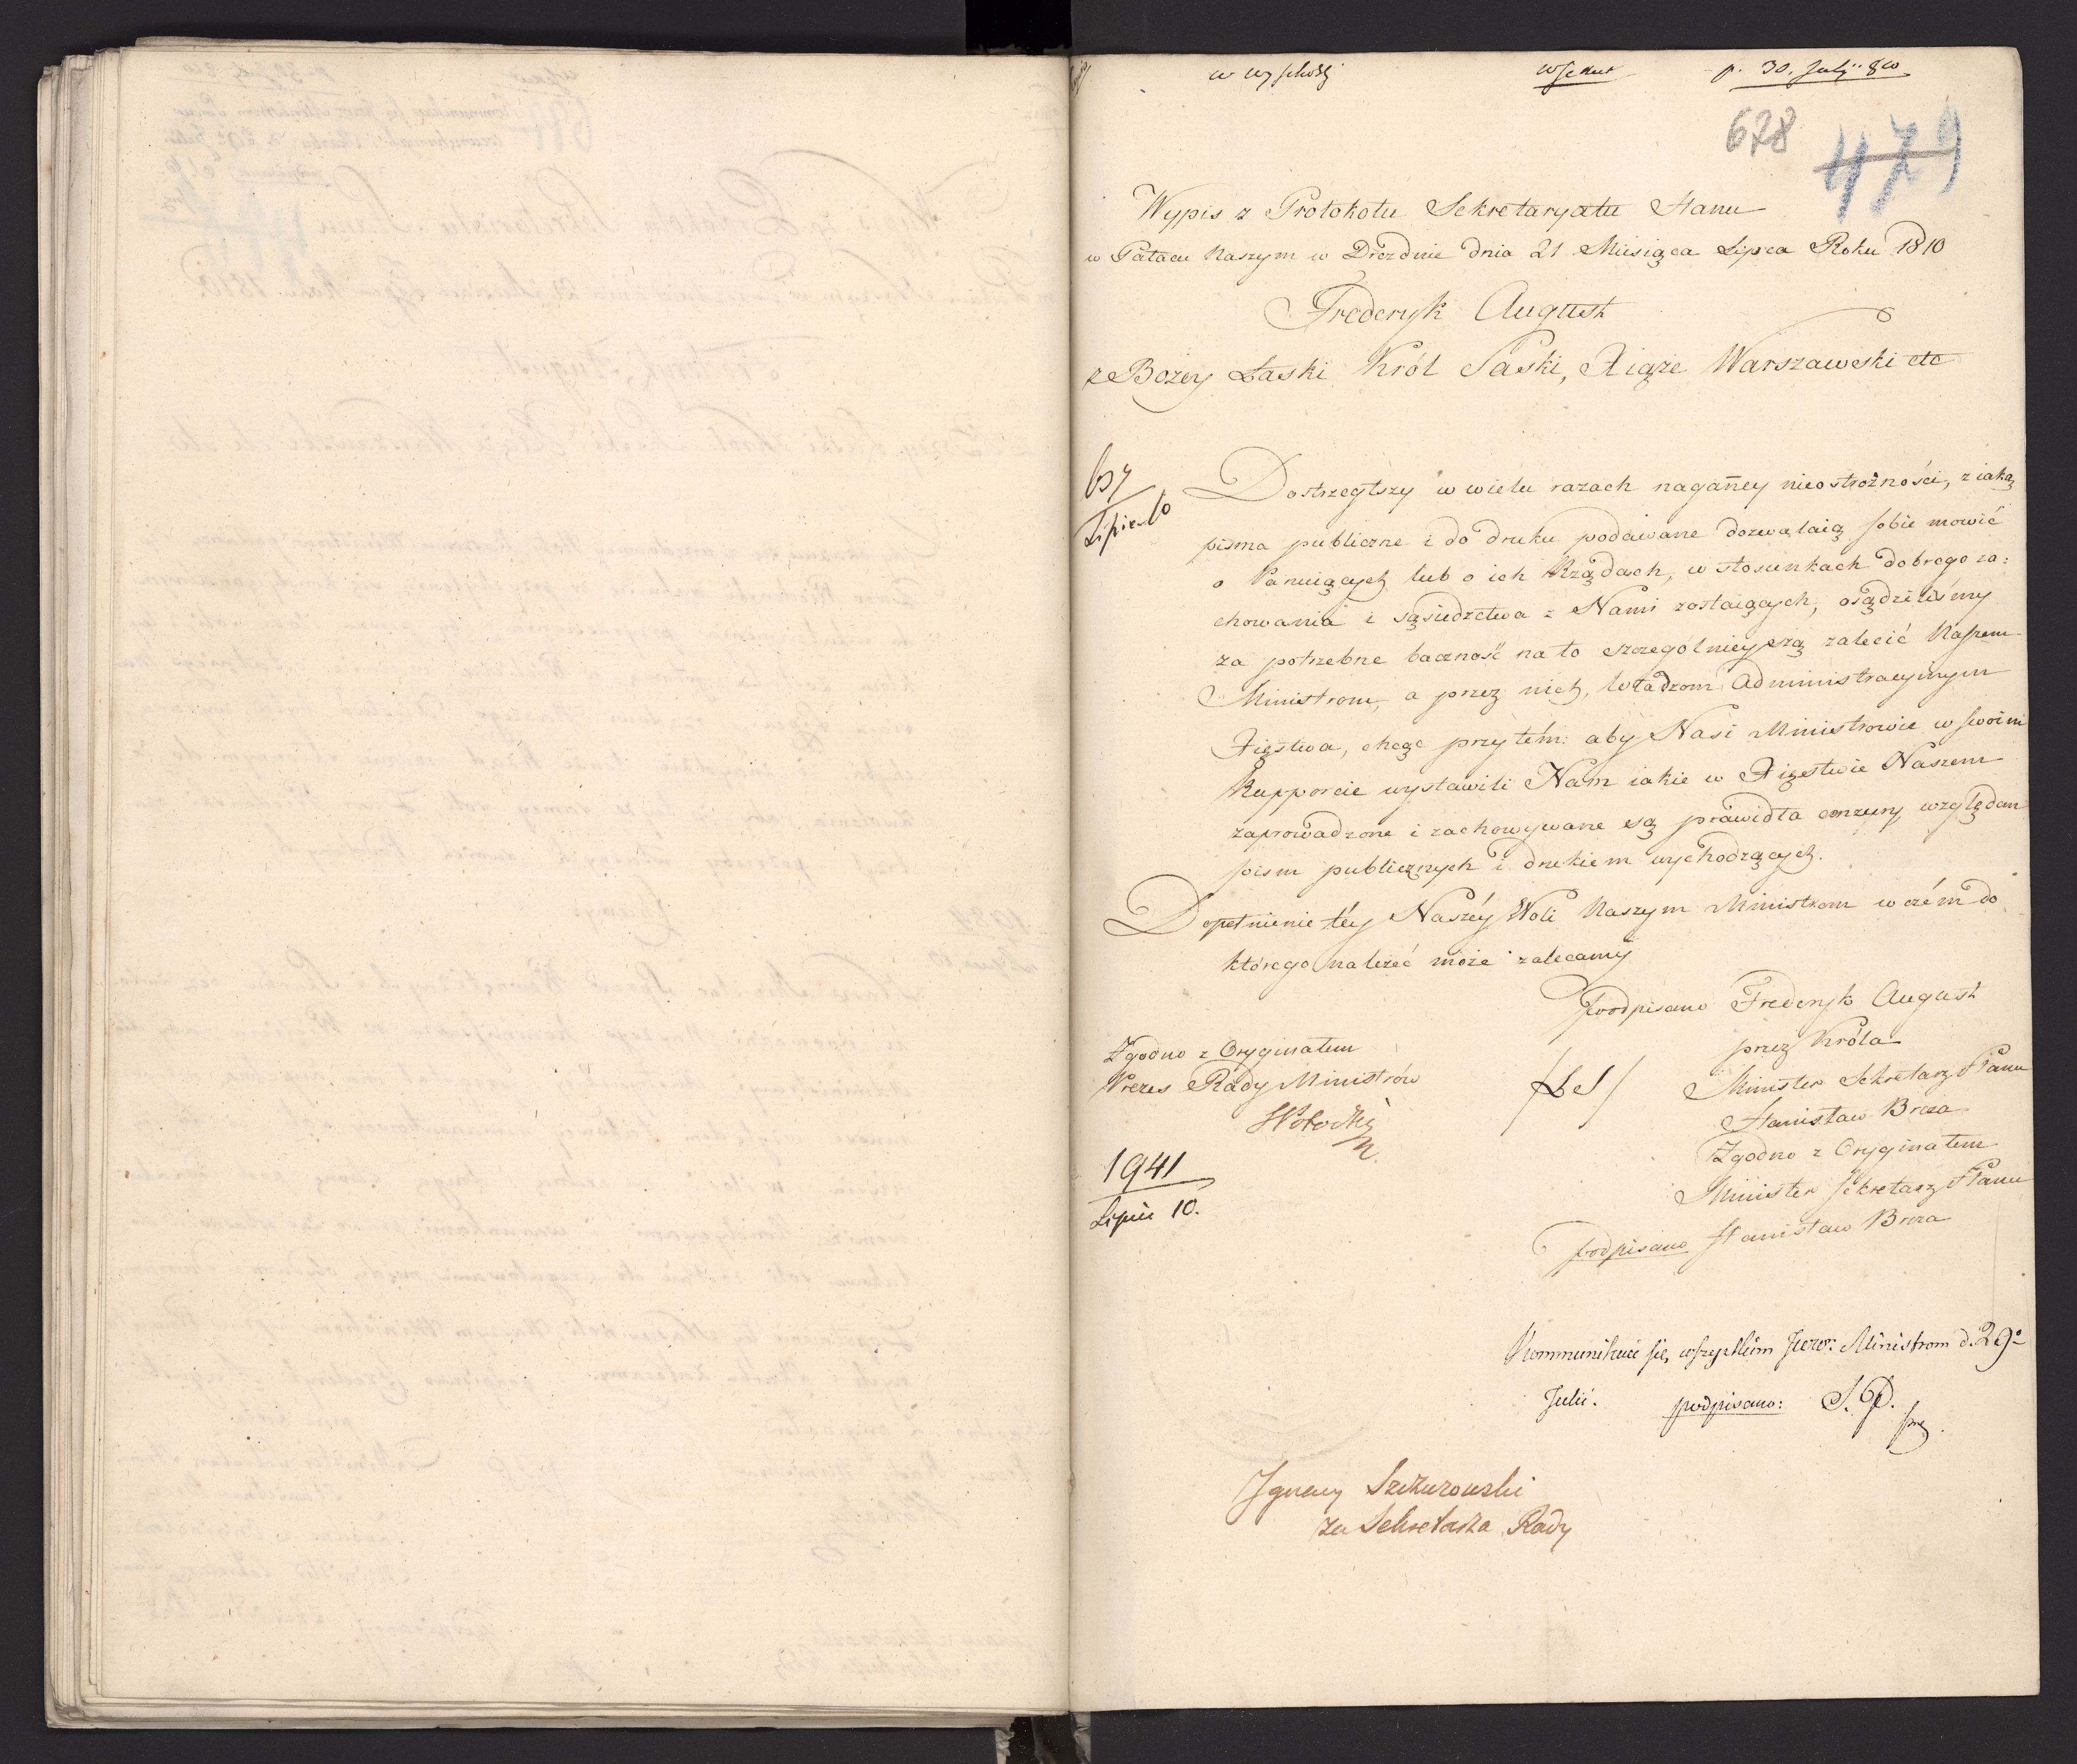 p. 30. July 810
678
479
Wypis z Protokołu Sekretaryatu Stanu
w Pałacu Naszym w Dreźdnie dnia 21 Miesiąca Lipca Roku 1810
Frederyk August
z Bożey Łaski Król Saski, Xiąże Warszawski etc
Dostrzegłszy w wielu razach nagańney nieostrożności, z iaką
pisma publiczne i do druku podawane dozwalaią sobie mowić
o Panuiących lub o ich Rządach, w stosunkach dobrego za:
chowania i sąsiedztwa z Nami zostaiących, osądziliśmy
za potrzebne baczność na to szczególnieyszą zalecić Naszem
Ministrom, a przez nich, Władzom Administracyinym
Xięstwa, chcąc przytém: aby Nasi Ministrowie w swoim
Rapporcie wystawili Nam iakie w Xięstwie Naszem
zaprowadzone i zachowywane są prawidła cenzury względem
pism publicznych i drukiem wychodzących.
Dopełnienie téy Naszéy Woli Naszym Ministrom w czém do
którego należeć może zalecamy
Podpisano Frederyk August
przez Króla
/LS/
Minister Sekretarz Stanu
Stanisław Breza
Zgodno z Oryginałem
Minister Sekretarz Stanu
podpisano Stanisław Breza
Zgodno z Oryginałem
Prezes Rady Ministrów
SPotocki
1941
Lipiec 10.
Kommunikuie się wszystkim Ministrom d. 29o
Julii. podpisano: S. P.
Ignacy Szczurowski
za Sekretarza Rady